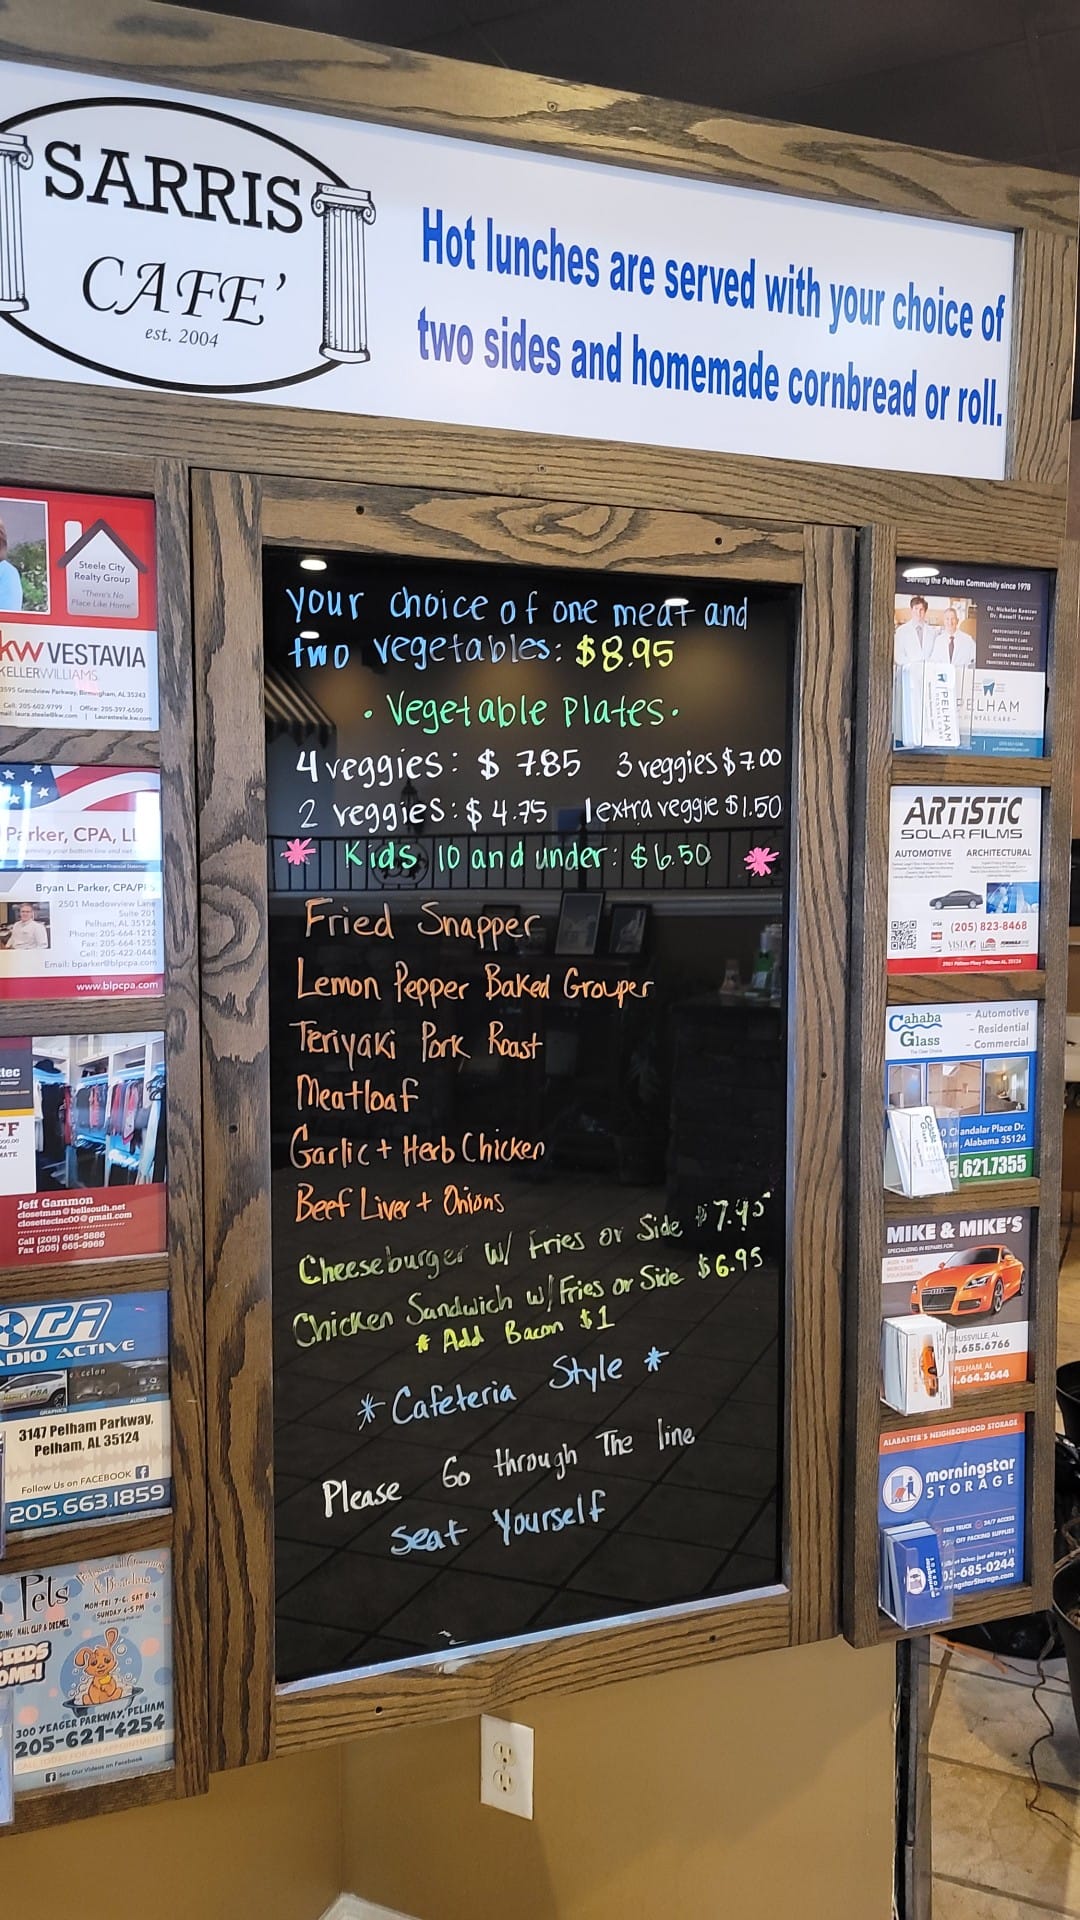 SARRIS
CAFE'
est. 2004
Hot lunches are served with your choice of
two sides and homemade cornbread or roll.
your choice of one meat and
two vegetables: $8.95
• Vegetable Plates •
4 veggies: $ 7.85 3 veggies $7.00
2 veggies: $ 4.75 1 extra veggie $1.50
* Kids 10 and under: $6.50 *
Fried Snapper
Lemon Pepper Baked Grouper
Teriyaki Pork Roast
Meatloaf
Garlic + Herb Chicken
Beef Liver + Onions
Cheeseburger w/ Fries or Side $7.45
Chicken Sandwich w/ Fries or Side $6.95
* Add Bacon $1
* Cafeteria Style *
Please Go through The line
seat Yourself
Steele City
Realty Group
"There's No
Place Like Home"
kw VESTAVIA
KELLERWILLIAMS.
3595 Grandview Parkway, Birmingham, AL 35243
Cell: 205-602-9799 | Office: 205-397-6500
laura.steele@kw.com | Laurasteele.kw.com
Parker, CPA, LL
Bryan L. Parker, CPA/PFS
2501 Meadowview Lane
Suite 201
Pelham, AL 35124
Phone: 205-664-1212
Fax: 205-664-1255
Cell: 205-422-0448
Email: bparker@blpcpa.com
www.blpcpa.com
Jeff Gammon
closetman@bellsouth.net
closettecinc00@gmail.com
Call (205) 665-5886
Fax (205) 665-9969
DIO ACTIVE
GRAPHICS
AUDIO
3147 Pelham Parkway,
Pelham, AL 35124
Follow Us on FACEBOOK
205.663.1859
Pets
& Boarding
MON-FRI 7-6, SAT 8-4
SUNDAY 4-5 PM
NAIL CLIP & DREMEL
300 YEAGER PARKWAY, PELHAM
205-621-4254
CALL TODAY FOR AN APPOINTMENT
See Our Videos on Facebook
Serving the Pelham Community since 1978
Dr. Russell Turner
PREVENTATIVE CARE
EMERGENCY CARE
COSMETIC PROCEDURES
RESTORATIVE CARE
PROSTHETIC PROCEDURES
PELHAM
DENTAL CARE
PELHAM
DENTAL CARE
ARTISTIC
SOLAR FILMS
AUTOMOTIVE ARCHITECTURAL
VISA
(205) 823-8468
VISTA
Cahaba
Glass
The Clear Choice
- Automotive
- Residential
- Commercial
Chandalar Place Dr.
, Alabama 35124
5.621.7355
MIKE & MIKE'S
SPECIALIZING IN REPAIRS FOR:
AUDI • BMW
MERCEDES
VOLKSWAGEN
.655.6766
PELHAM, AL
.664.3644
ALABASTER'S NEIGHBORHOOD STORAGE
morningstar
STORAGE
FREE TRUCK 24/7 ACCESS
OFF PACKING SUPPLIES
-685-0244